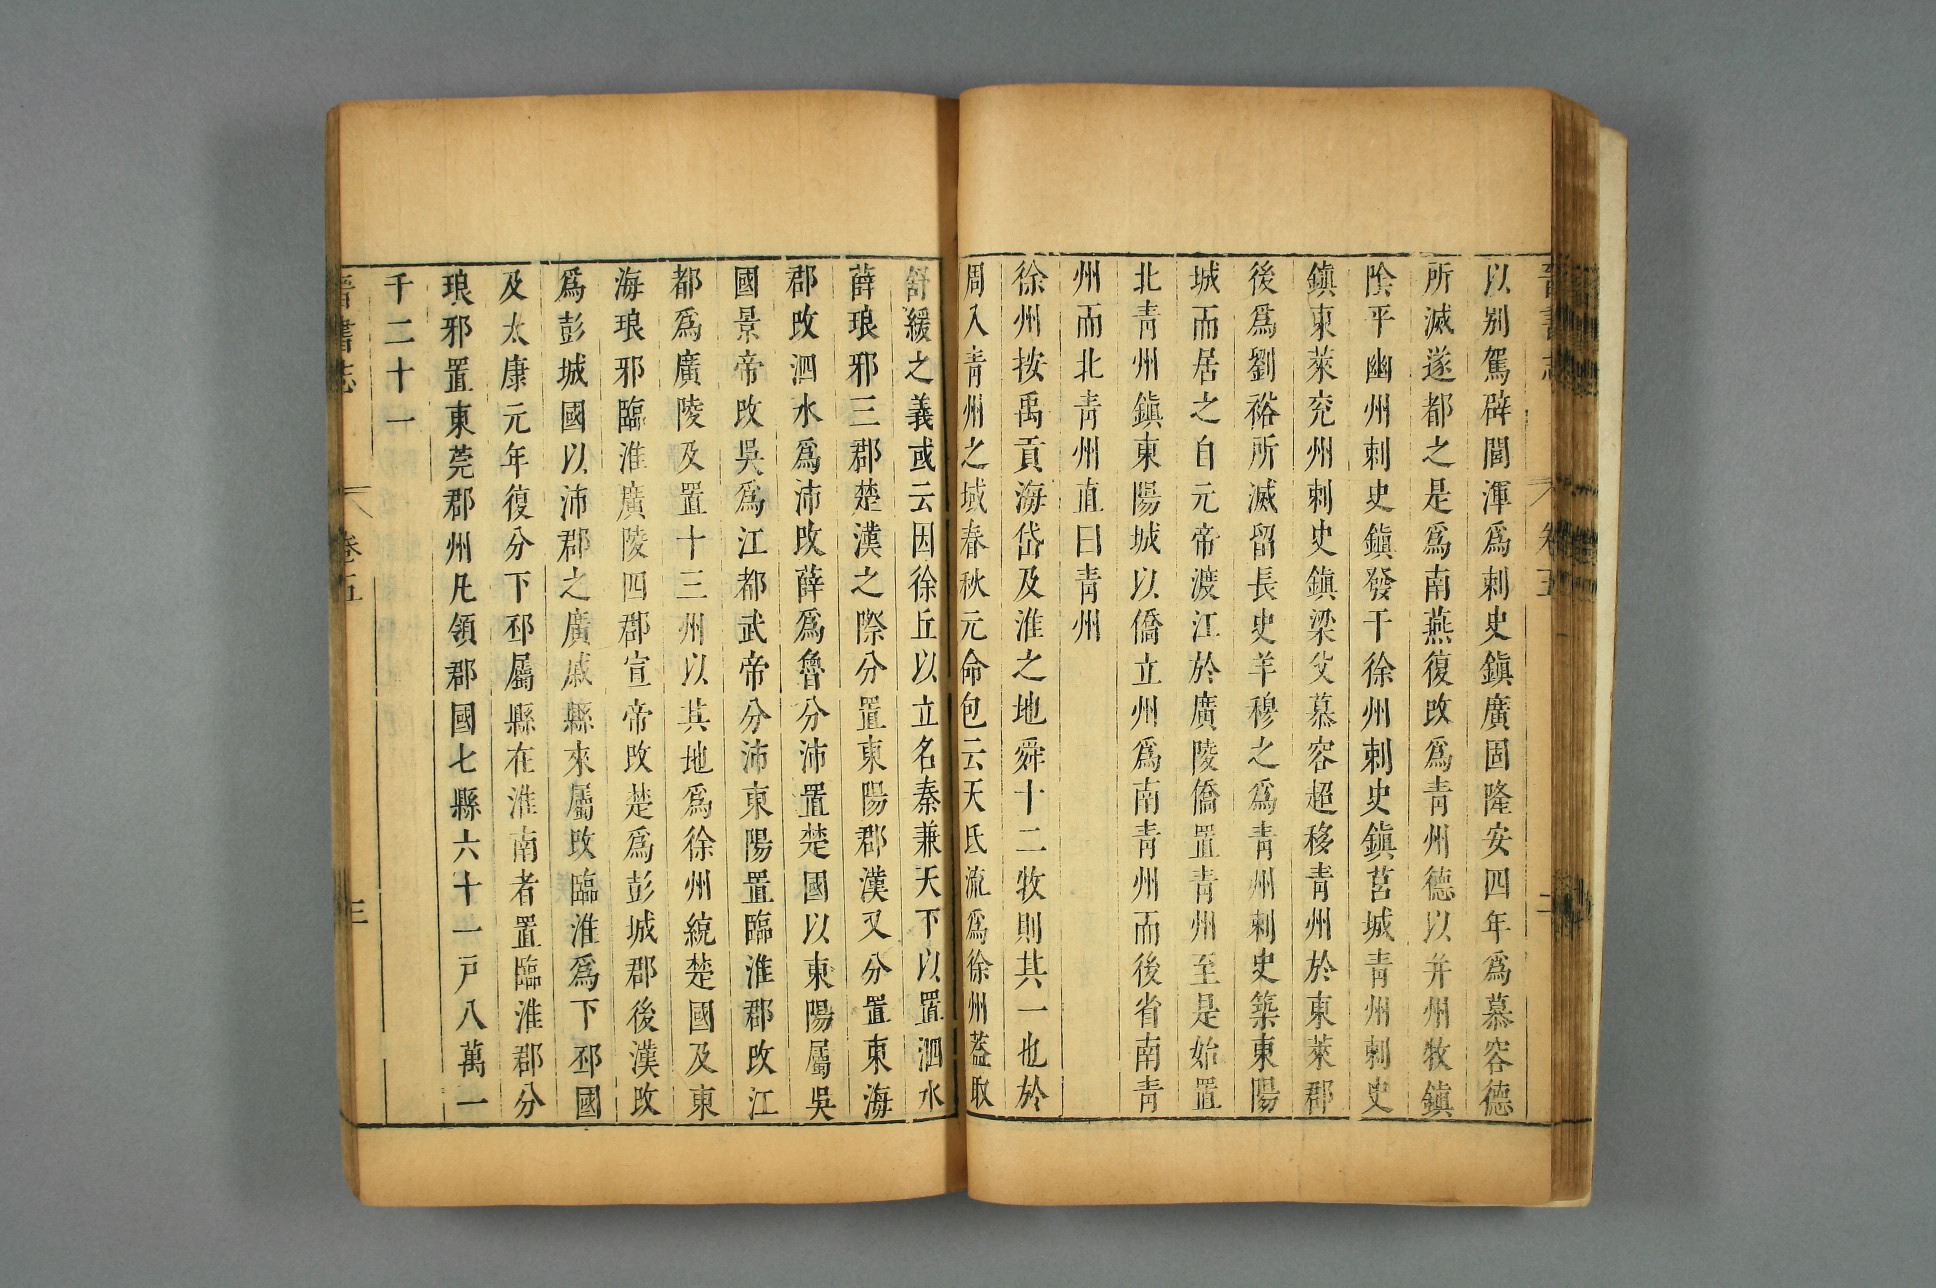 以別駕辟閭渾爲刺史鎮廣固隆安四年爲慕容德
所滅遂都之是爲南燕復改爲青州德以并州牧鎮
陰平幽州刺史鎮發干徐州刺史鎮莒城青州刺史
鎮東萊兖州刺史鎮梁父慕容超移青州於東萊郡
後爲劉裕所滅留長史羊穆之爲青州刺史築東陽
城而居之自元帝渡江於廣陵僑置青州至是始置
北青州鎮東陽城以僑立州爲南青州而後省南青
州而北青州直曰青州
徐州按禹貢海岱及淮之地舜十二牧則其一也於
周入青州之域春秋元命包云天氐流爲徐州蓋取
舒緩之義或云因徐丘以立名秦兼天下以置泗水
薛琅邪三郡楚漢之際分置東陽郡漢又分置東海
郡改泗水爲沛改薛爲魯分沛置楚國以東陽屬吳
國景帝改吳爲江都武帝分沛東陽置臨淮郡改江
都爲廣陵及置十三州以其地爲徐州統楚國及東
海琅邪臨淮廣陵四郡宣帝改楚爲彭城郡後漢改
爲彭城國以沛郡之廣戚縣來屬改臨淮爲下邳國
及太康元年復分下邳屬縣在淮南者置臨淮郡分
琅邪置東莞郡州凡領郡國七縣六十一戸八萬一
千二十一
晉書志 卷五 三